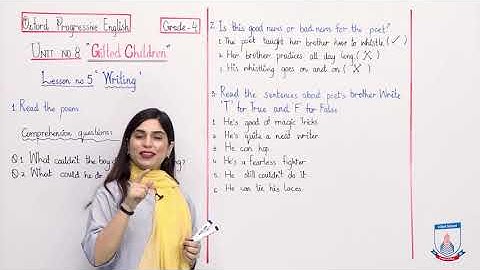 Oxford Progressive English
Grade-4
Unit no 8 "Gifted Children"
Lesson no 5 "Writing"
1. Read the poem
Comprehension questions
Q1 What couldn't the boy
Q2 What could he do
2. Is this good news or bad news for the poet?
1. The poet taught her brother how to whistle (✓)
2. Her brother practices all day long (X)
3. His whistling goes on and on (X)
3. Read the sentences about poet's brother. Write
'T' for True and 'F' for False
1. He's good at magic tricks
2. He's quite a neat writer
3. He can hop
4. He's a fearless fighter
5. He still couldn't do it
6. He can tie his laces.